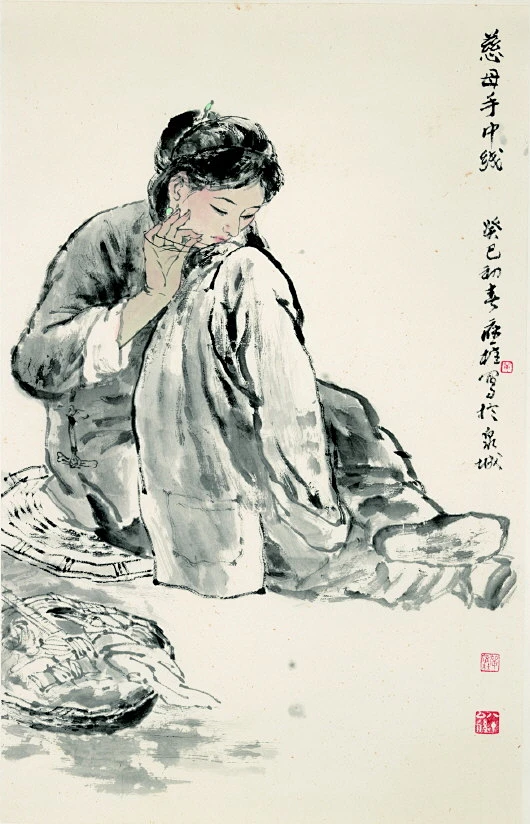 慈母手中线
癸巳初春 雄写于泉城